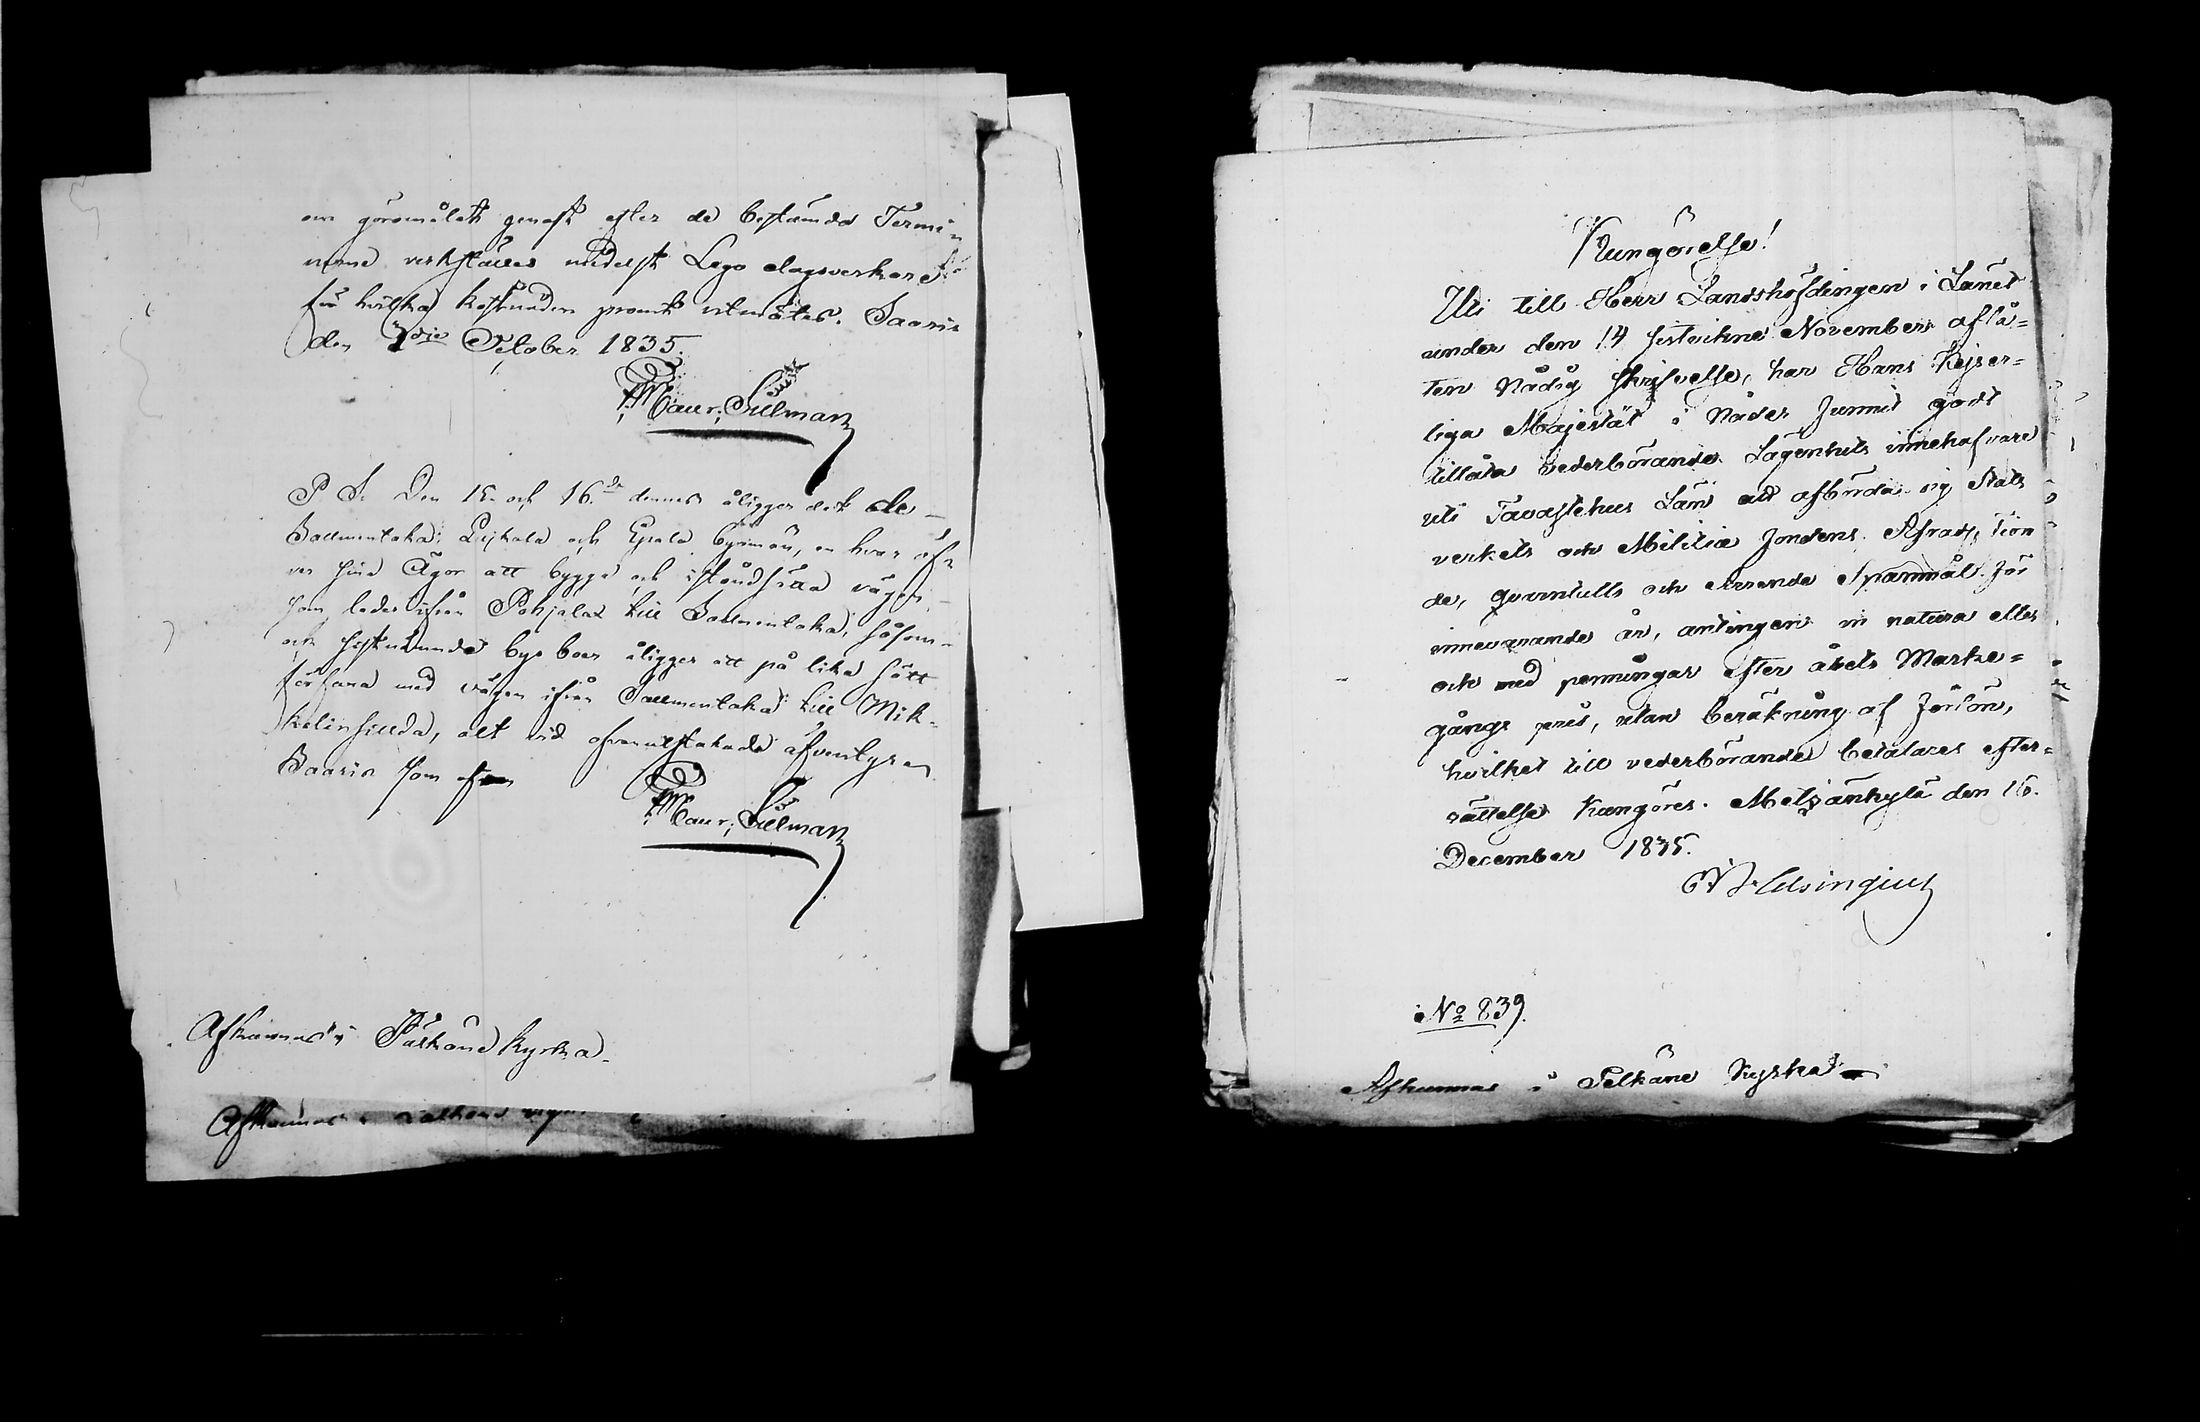 om göromålets genast efter de bestämda Termi-
nerne verkställes medelst Lego dagsverkare
för hvilka kostnaden promt utmätes. Saaris
den 7de October 1835.
Maur: Sillman
P S. Den 15 och 16de dennes åligger det de
Salmentaka, Luikala och Epala byamän, en hvar öf-
ver sina Ägor att bygga och iståndsätta vägen
som leder ifrån Pohjala till Salmentaka, såsom
och sistnämnde bys boer åligger att på lika sätt
förfara med vägen ifrån Salmentaka till Mik-
kelinsillda, alt vid ofvanutstakade äfventyr
Saaris som ofvan
Maur: Sillman
Afkunnas i Pälkäne Kyrka.
Afkunnas i
Kungörelse!
Uti till Herr Landshöfdingen i Länet
under den 14 sistvikne November aflå=
ten Nådig skrifvelse, har Hans Kejser=
liga Majestät i Nåder funnit godt
tillåta vederbörande Lägenhets innehafvare
uti Tavastehus Län att afbörda sig Stats
verkets och Militiæ fondens Afrads, Tion
de, qvarntulls och Arrende Spanmål för
innevarande år, antingen in natura eller
och med penningar efter årets Marke=
gångs pris, utan beräkning af förlön,
hvilket till vederbörandes betalares efter=
rättelse kungöres. Melzänkylä den 16.
December 1835.
Helsingius
No 839.
Afkunnas i Pelkäne Kyrka